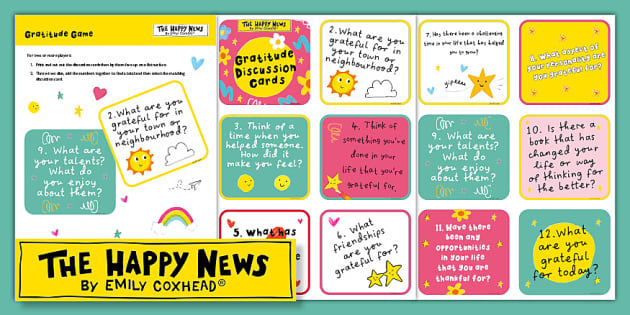 Gratitude Game
For two or more players:
1. Print and cut out the discussion cards then lay them face up on a flat surface.
2. Throw two dice, add the numbers together to find a total and then select the matching
discussion card.
2. What are you
grateful for
in your
town or
neighbourhood?
9. What are
your talents?
What do
you enjoy
about them?
THE HAPPY NEWS
BY EMILY COXHEAD®
THE HAPPY NEWS
BY EMILY COXHEAD®
Gratitude
Discussion
Cards
2. What are you
grateful for in
your town or
neighbourhood?
7. Has there been a challenging
time in your life that has helped
you to grow?
yippee
8. What aspect of
your personality are
you grateful for?
3. Think of a
time when you
helped someone.
How did it
make you feel?
4. Think of
something you've
done in your
life that you're
grateful for.
9. What are
your talents?
What do
you enjoy
about them?
10. Is there a
book that has
changed your
life or way of
thinking for
the better?
5. What has
6. What
friendships
are you
grateful for?
11. Have there
been any
opportunities
in your life
that you are
thankful for?
12. What
are you
grateful
for today?